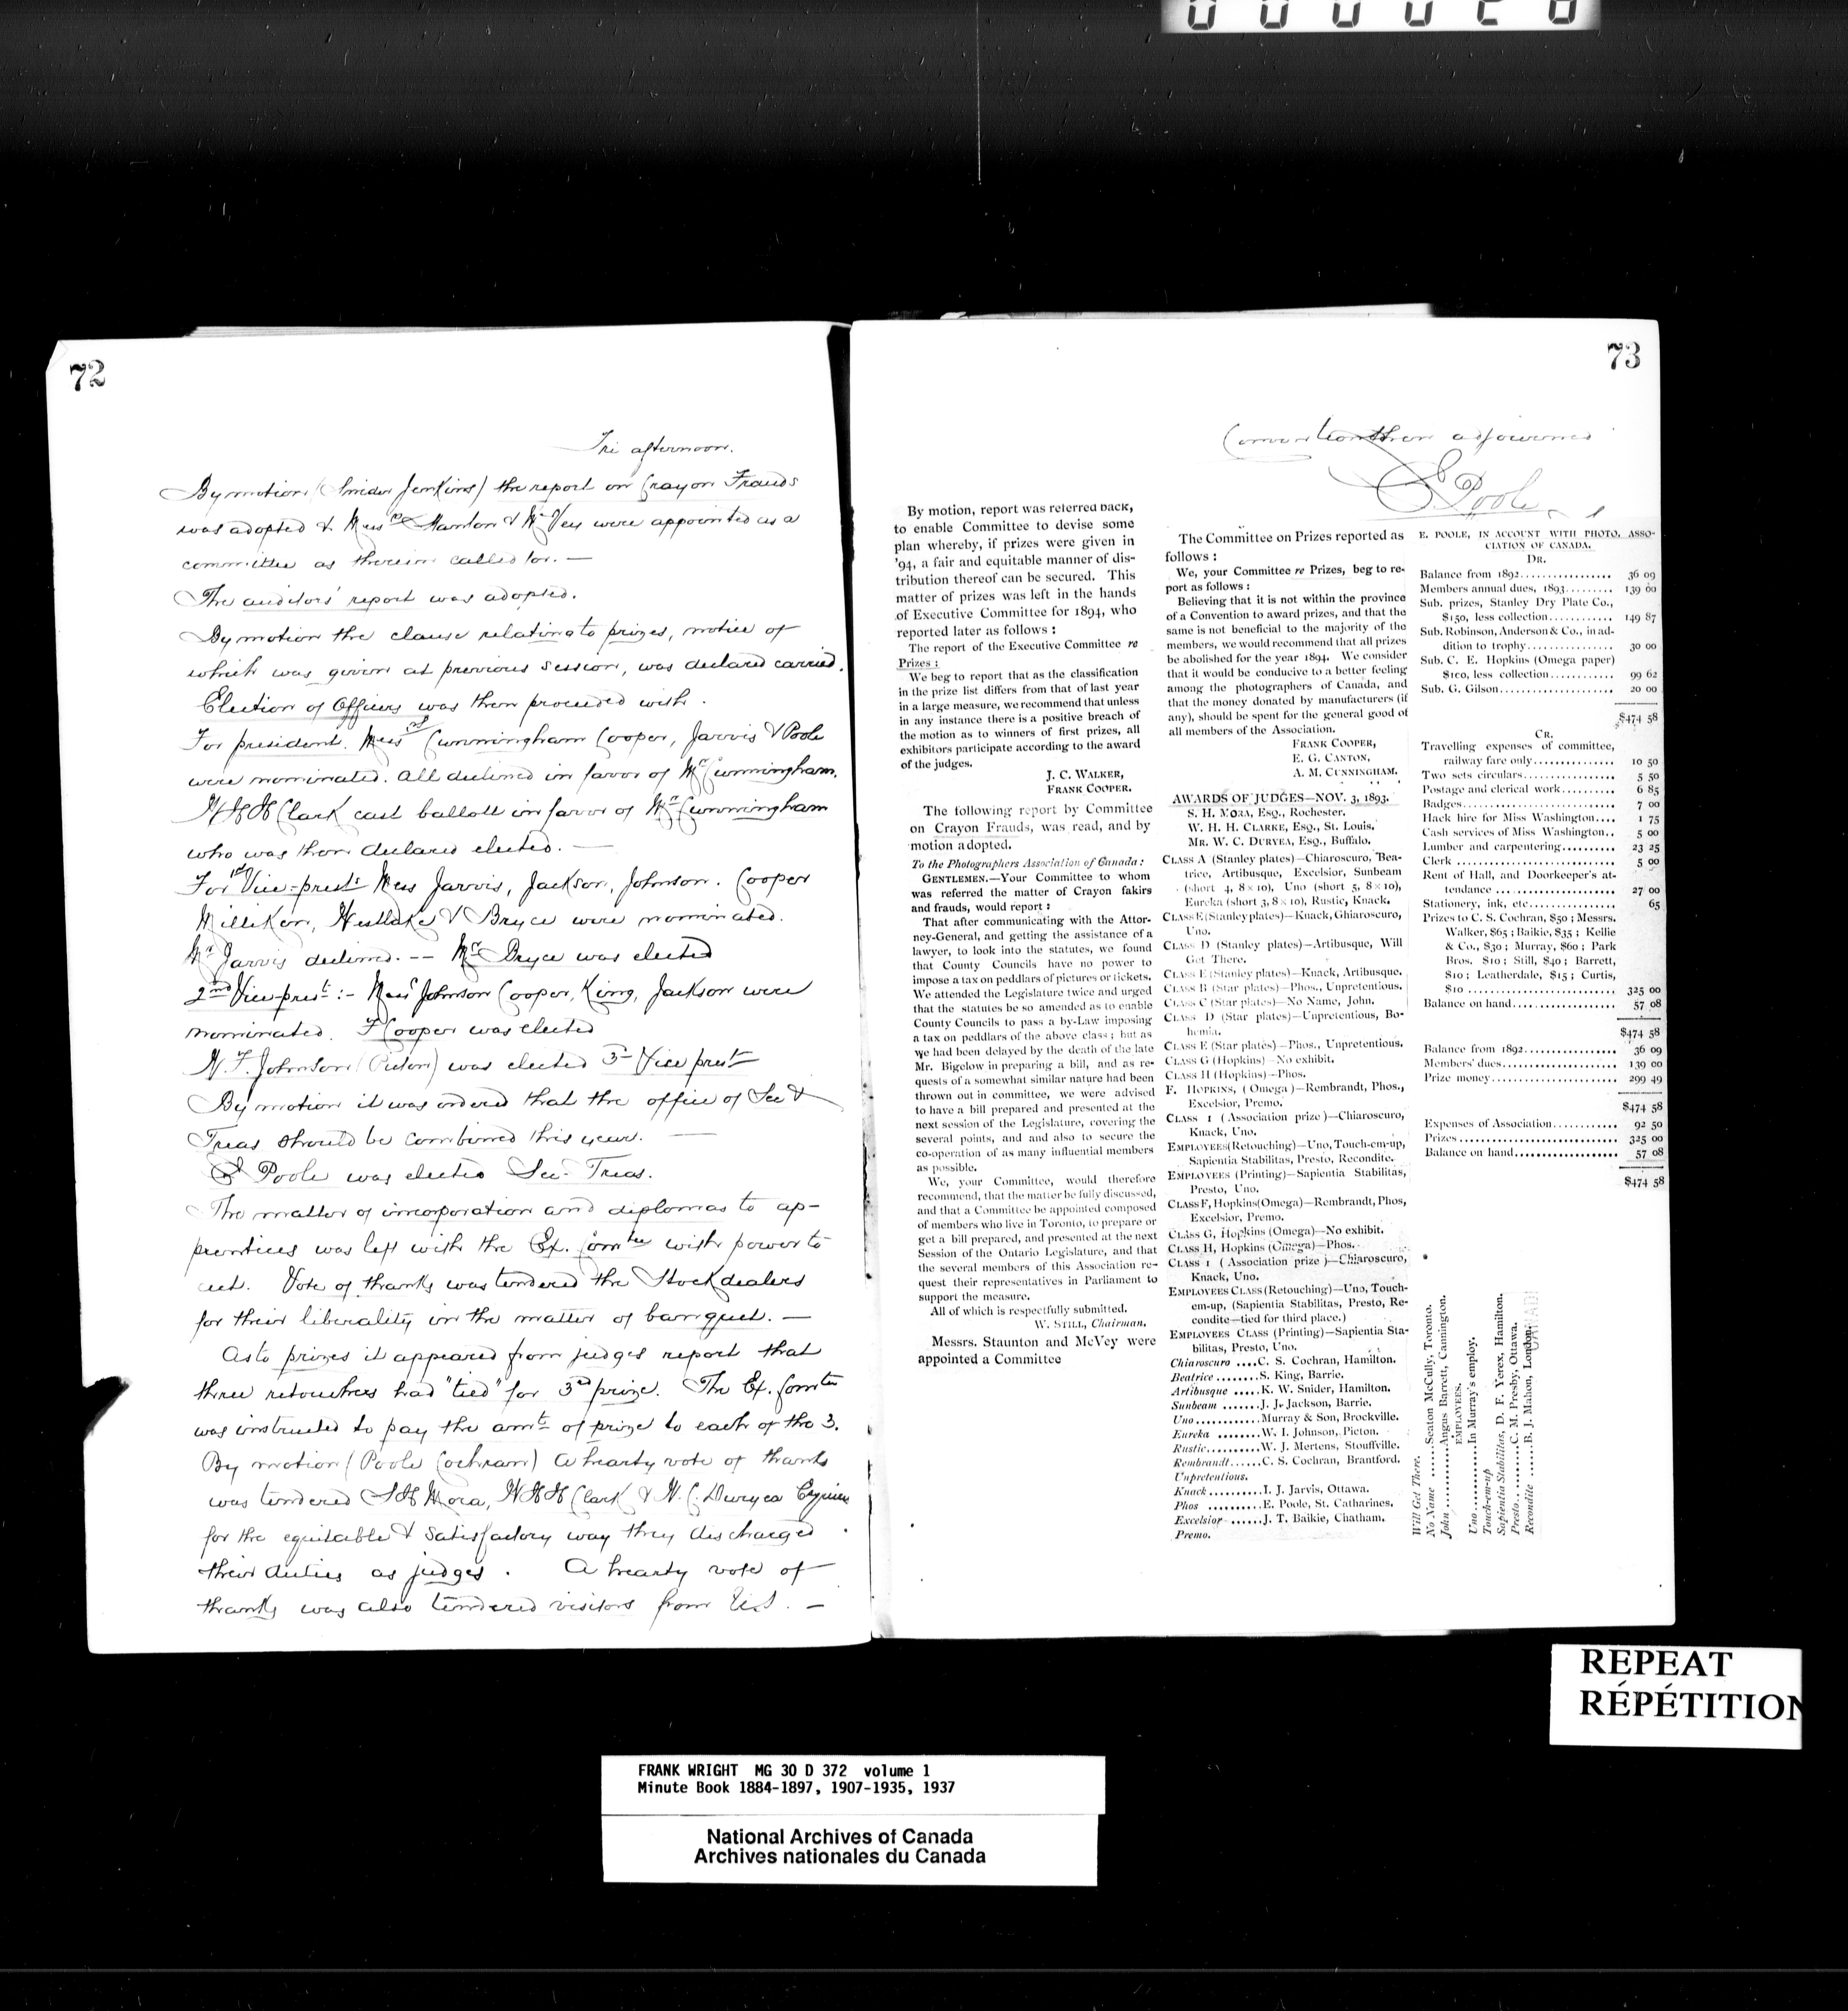 72
Fri afternoon.
By motion (Snider Jenkins) the report on Crayon Frauds
was adopted & Messrs Stanton & McVey were appointed as a
committee as therein called for. —
The auditors' report was adopted.
By motion the clause relating to prizes, notice of
which was given at previous session, was declared carried.
Election of Officers was then proceeded with.
For president. Messrs Cunningham Cooper, Jarvis & Poole
were nominated. All declined in favor of Mr Cunningham.
W H H Clark cast ballott in favor of Mr Cunningham
who was then declared elected. —
For 1st Vice-prest Mess Jarvis, Jackson, Johnson. Cooper
Milliken, Westlake & Bryce were nominated.
Mr Jarvis declined. -- Mr Bryce was elected
2nd Vice-prest :- Mess Johnson Cooper, King, Jackson were
nominated. F Cooper was elected
W. F. Johnson (Picton) was elected 3rd Vice prest
By motion it was ordered that the office of Sec &
Treas should be combined this year. —
E Poole was elected Sec-Treas.
The matter of incorporation and diplomas to ap-
prentices was left with the Ex. Comtee with power to
act. Vote of thanks was tendered the Stockdealers
for their liberality in the matter of banquet. —
As to prizes it appeared from judges report that
three retouchers had "tied" for 3rd prize. The Ex. Comtee
was instructed to pay the amt of prize to each of the 3.
By motion (Poole Cochran) a hearty vote of thanks
was tendered S H Mora, W H H Clark & W. C. Duryea Esquires
for the equitable & satisfactory way they discharged
their duties as judges. A hearty vote of
thanks was also tendered visitors from U.S. —
73
Convention then adjourned
E Poole
By motion, report was referred back,
to enable Committee to devise some
plan whereby, if prizes were given in
'94, a fair and equitable manner of dis-
tribution thereof can be secured. This
matter of prizes was left in the hands
of Executive Committee for 1894, who
reported later as follows:
The report of the Executive Committee re
Prizes:
We beg to report that as the classification
in the prize list differs from that of last year
in a large measure, we recommend that unless
in any instance there is a positive breach of
the motion as to winners of first prizes, all
exhibitors participate according to the award
of the judges.
J. C. WALKER,
FRANK COOPER.
The following report by Committee
on Crayon Frauds, was read, and by
motion adopted.
To the Photographers Association of Canada:
GENTLEMEN.—Your Committee to whom
was referred the matter of Crayon fakirs
and frauds, would report:
That after communicating with the Attor-
ney-General, and getting the assistance of a
lawyer, to look into the statutes, we found
that County Councils have no power to
impose a tax on peddlars of pictures or tickets.
We attended the Legislature twice and urged
that the statutes be so amended as to enable
County Councils to pass a by-Law imposing
a tax on peddlars of the above class; but as
we had been delayed by the death of the late
Mr. Bigelow in preparing a bill, and as re-
quests of a somewhat similar nature had been
thrown out in committee, we were advised
to have a bill prepared and presented at the
next session of the Legislature, covering the
several points, and and also to secure the
co-operation of as many influential members
as possible.
We, your Committee, would therefore
recommend, that the matter be fully discussed,
and that a Committee be appointed composed
of members who live in Toronto, to prepare or
get a bill prepared, and presented at the next
Session of the Ontario Legislature, and that
the several members of this Association re-
quest their representatives in Parliament to
support the measure.
All of which is respectfully submitted.
W. STILL, Chairman.
Messrs. Staunton and McVey were
appointed a Committee
The Committee on Prizes reported as
follows:
We, your Committee re Prizes, beg to re-
port as follows:
Believing that it is not within the province
of a Convention to award prizes, and that the
same is not beneficial to the majority of the
members, we would recommend that all prizes
be abolished for the year 1894. We consider
that it would be conducive to a better feeling
among the photographers of Canada, and
that the money donated by manufacturers (if
any), should be spent for the general good of
all members of the Association.
FRANK COOPER,
E. G. CANTON,
A. M. CUNNINGHAM.
AWARDS OF JUDGES—NOV. 3, 1893.
S. H. MORA, Esq., Rochester.
W. H. H. CLARKE, Esq., St. Louis.
MR. W. C. DURYEA, Esq., Buffalo.
CLASS A (Stanley plates)—Chiaroscuro, Bea-
trice, Artibusque, Excelsior, Sunbeam
(short 4, 8×10), Uno (short 5, 8×10),
Eureka (short 3, 8×10), Rustic, Knack.
CLASS E (Stanley plates)—Knack, Ghiaroscuro,
Uno.
CLASS D (Stanley plates)—Artibusque, Will
Get There.
CLASS E (Stanley plates)—Knack, Artibusque.
CLASS B (Star plates)—Phos., Unpretentious.
CLASS C (Star plates)—No Name, John.
CLASS D (Star plates)—Unpretentious, Bo-
hemia.
CLASS E (Star plates)—Phos., Unpretentious.
CLASS G (Hopkins)—No exhibit.
CLASS H (Hopkins)—Phos.
F. HOPKINS, (Omega)—Rembrandt, Phos.,
Excelsior, Premo.
CLASS 1 (Association prize)—Chiaroscuro,
Knack, Uno.
EMPLOYEES (Retouching)—Uno, Touch-em-up,
Sapientia Stabilitas, Presto, Recondite.
EMPLOYEES (Printing)—Sapientia Stabilitas,
Presto, Uno.
CLASS F, Hopkins (Omega)—Rembrandt, Phos,
Excelsior, Premo.
CLASS G, Hopkins (Omega)—No exhibit.
CLASS H, Hopkins (Omega)—Phos.
CLASS 1 (Association prize)—Chiaroscuro,
Knack, Uno.
EMPLOYEES CLASS (Retouching)—Uno, Touch-
em-up, (Sapientia Stabilitas, Presto, Re-
condite—tied for third place.)
EMPLOYEES CLASS (Printing)—Sapientia Sta-
bilitas, Presto, Uno.
Chiaroscuro ....C. S. Cochran, Hamilton.
Beatrice ........S. King, Barrie.
Artibusque .....K. W. Snider, Hamilton.
Sunbeam .......J. J. Jackson, Barrie.
Uno............Murray & Son, Brockville.
Eureka ........W. I. Johnson, Picton.
Rustic..........W. J. Mertens, Stouffville.
Rembrandt......C. S. Cochran, Brantford.
Unpretentious.
Knack..........I. J. Jarvis, Ottawa.
Phos ..........E. Poole, St. Catharines.
Excelsior ......J. T. Baikie, Chatham.
Premo.
E. POOLE, IN ACCOUNT WITH PHOTO. ASSO-
CIATION OF CANADA.
DR.
Balance from 1892................ 36 09
Members annual dues, 1893......... 139 00
Sub. prizes, Stanley Dry Plate Co.,
$150, less collection............ 149 87
Sub. Robinson, Anderson & Co., in ad-
dition to trophy................ 30 00
Sub. C. E. Hopkins (Omega paper)
$100, less collection............ 99 62
Sub. G. Gilson..................... 20 00
$474 58
CR.
Travelling expenses of committee,
railway fare only.............. 10 50
Two sets circulars................ 5 50
Postage and clerical work.......... 6 85
Badges............................ 7 00
Hack hire for Miss Washington.... 1 75
Cash services of Miss Washington.. 5 00
Lumber and carpentering......... 23 25
Clerk ............................ 5 00
Rent of Hall, and Doorkeeper's at-
tendance ...................... 27 00
Stationery, ink, etc................ 65
Prizes to C. S. Cochran, $50; Messrs.
Walker, $65; Baikie, $35; Kellie
& Co., $30; Murray, $60; Park
Bros. $10; Still, $40; Barrett,
$10; Leatherdale, $15; Curtis,
$10 ........................... 325 00
Balance on hand................... 57 08
$474 58
Balance from 1892................. 36 09
Members' dues..................... 139 00
Prize money....................... 299 49
$474 58
Expenses of Association............ 92 50
Prizes............................. 325 00
Balance on hand................... 57 08
$474 58
Will Get There.
No Name ......Seaton McCully, Toronto.
John ...........Angus Barrett, Cannington.
EMPLOYEES.
Uno............In Murray's employ.
Touch-em-up
Sapientia Stabilitas, D. F. Yerex, Hamilton.
Presto..........C. M. Presby, Ottawa.
Recondite ......B. J. Mahon, London.
REPEAT
RÉPÉTITION
FRANK WRIGHT MG 30 D 372 volume 1
Minute Book 1884-1897, 1907-1935, 1937
National Archives of Canada
Archives nationales du Canada